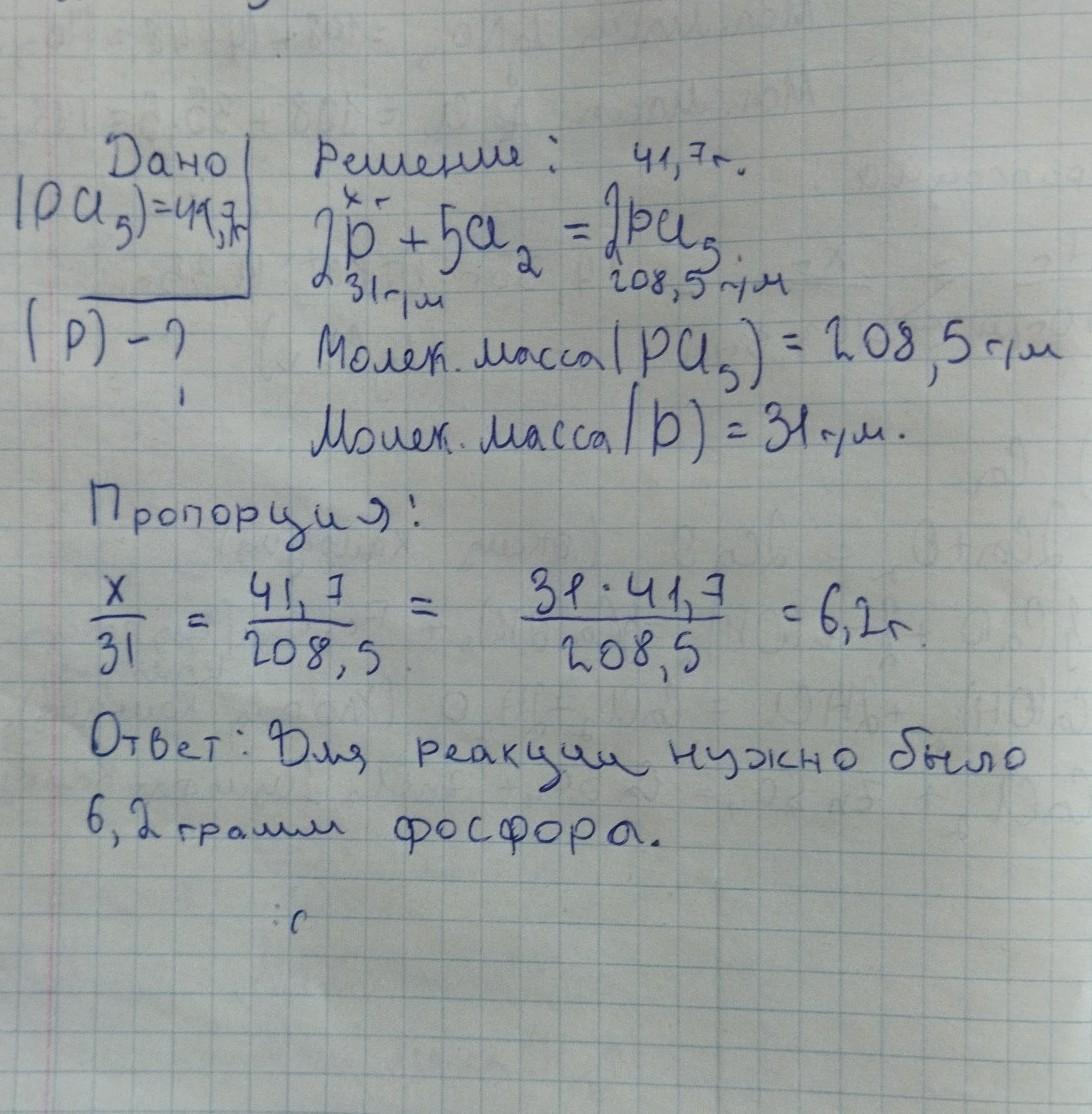 Дано Решение: 41,7 г.
(PCl5)=41,7г х г
2P + 5Cl2 = 2PCl5
31 г/м 208,5 г/м
(P) - ? Молек. масса (PCl5) = 208,5 г/м
Молек. масса (P) = 31 г/м.
Пропорция:
x/31 = 41,7/208,5 = 31·41,7/208,5 = 6,2 г.
Ответ: Для реакции нужно было
6,2 грамм фосфора.